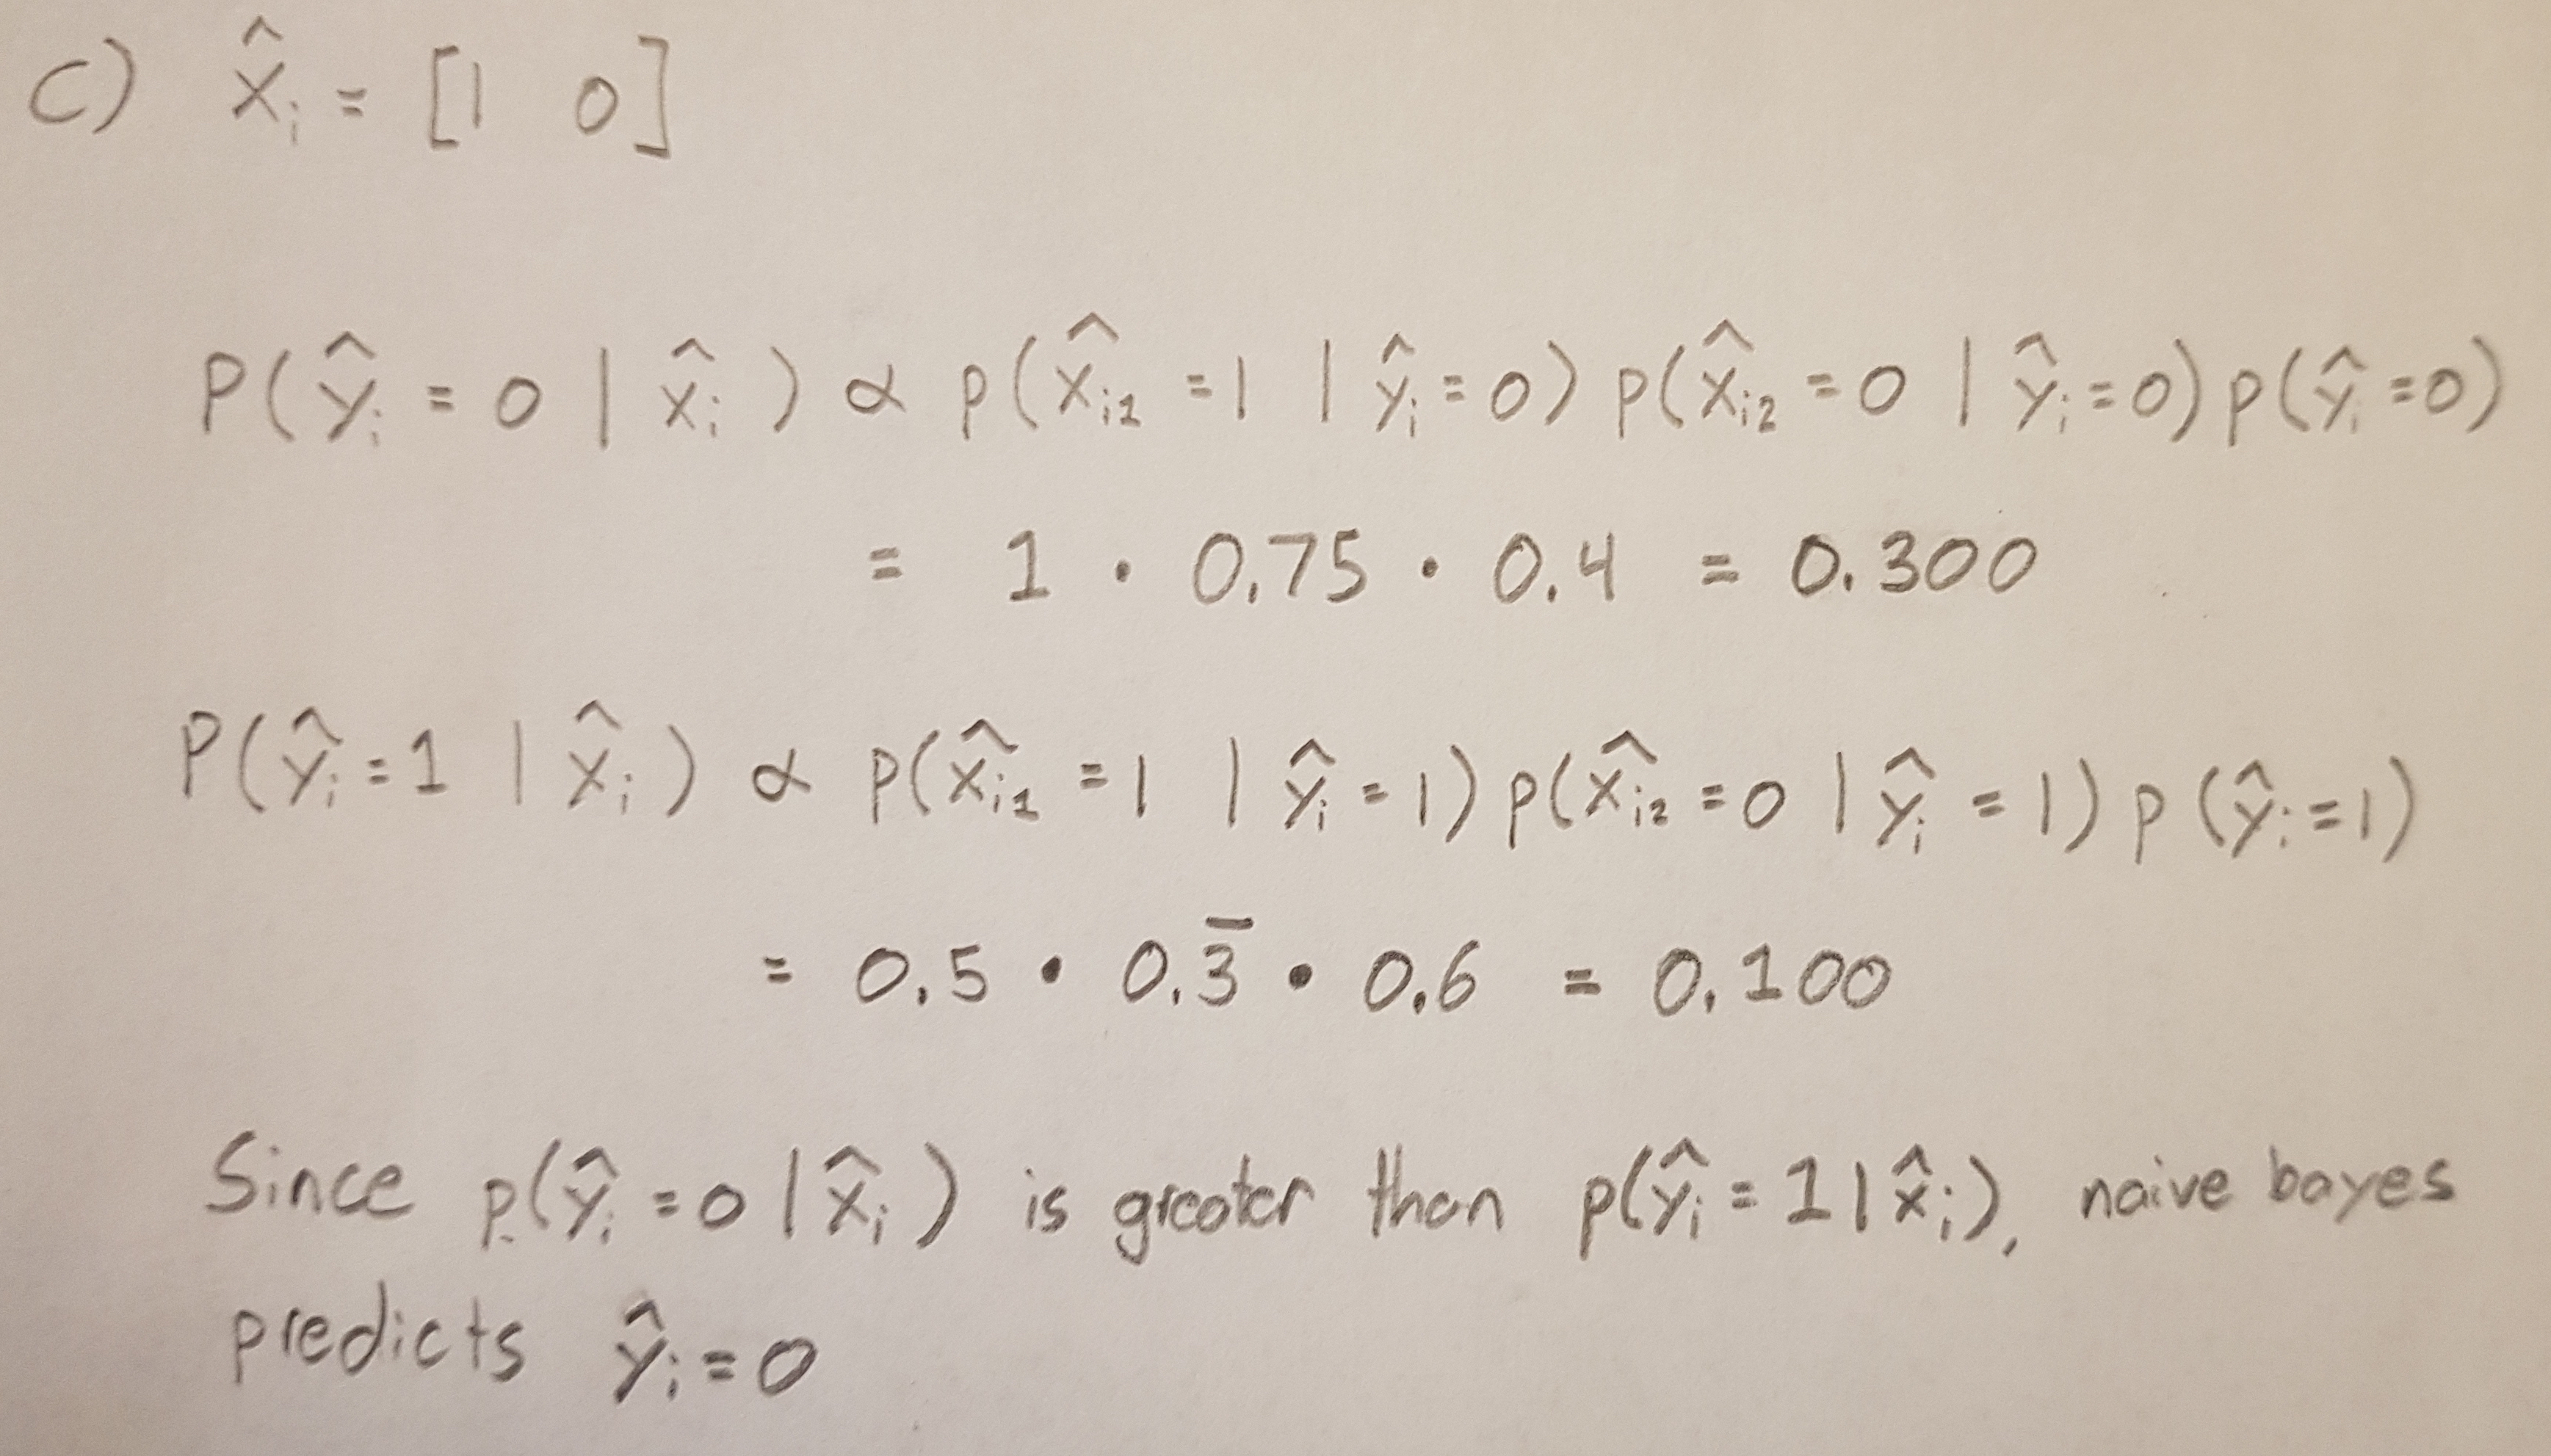 c) x̂ᵢ = [1 0]
P(ŷᵢ = 0 | x̂ᵢ) ∝ p(x̂ᵢ₁ = 1 | ŷᵢ = 0) p(x̂ᵢ₂ = 0 | ŷᵢ = 0) p(ŷᵢ = 0)
= 1 · 0.75 · 0.4 = 0.300
P(ŷᵢ = 1 | x̂ᵢ) ∝ p(x̂ᵢ₁ = 1 | ŷᵢ = 1) p(x̂ᵢ₂ = 0 | ŷᵢ = 1) p(ŷᵢ = 1)
= 0.5 · 0.3̅ · 0.6 = 0.100
Since p(ŷᵢ = 0 | x̂ᵢ) is greater than p(ŷᵢ = 1 | x̂ᵢ), naive bayes
predicts ŷᵢ = 0